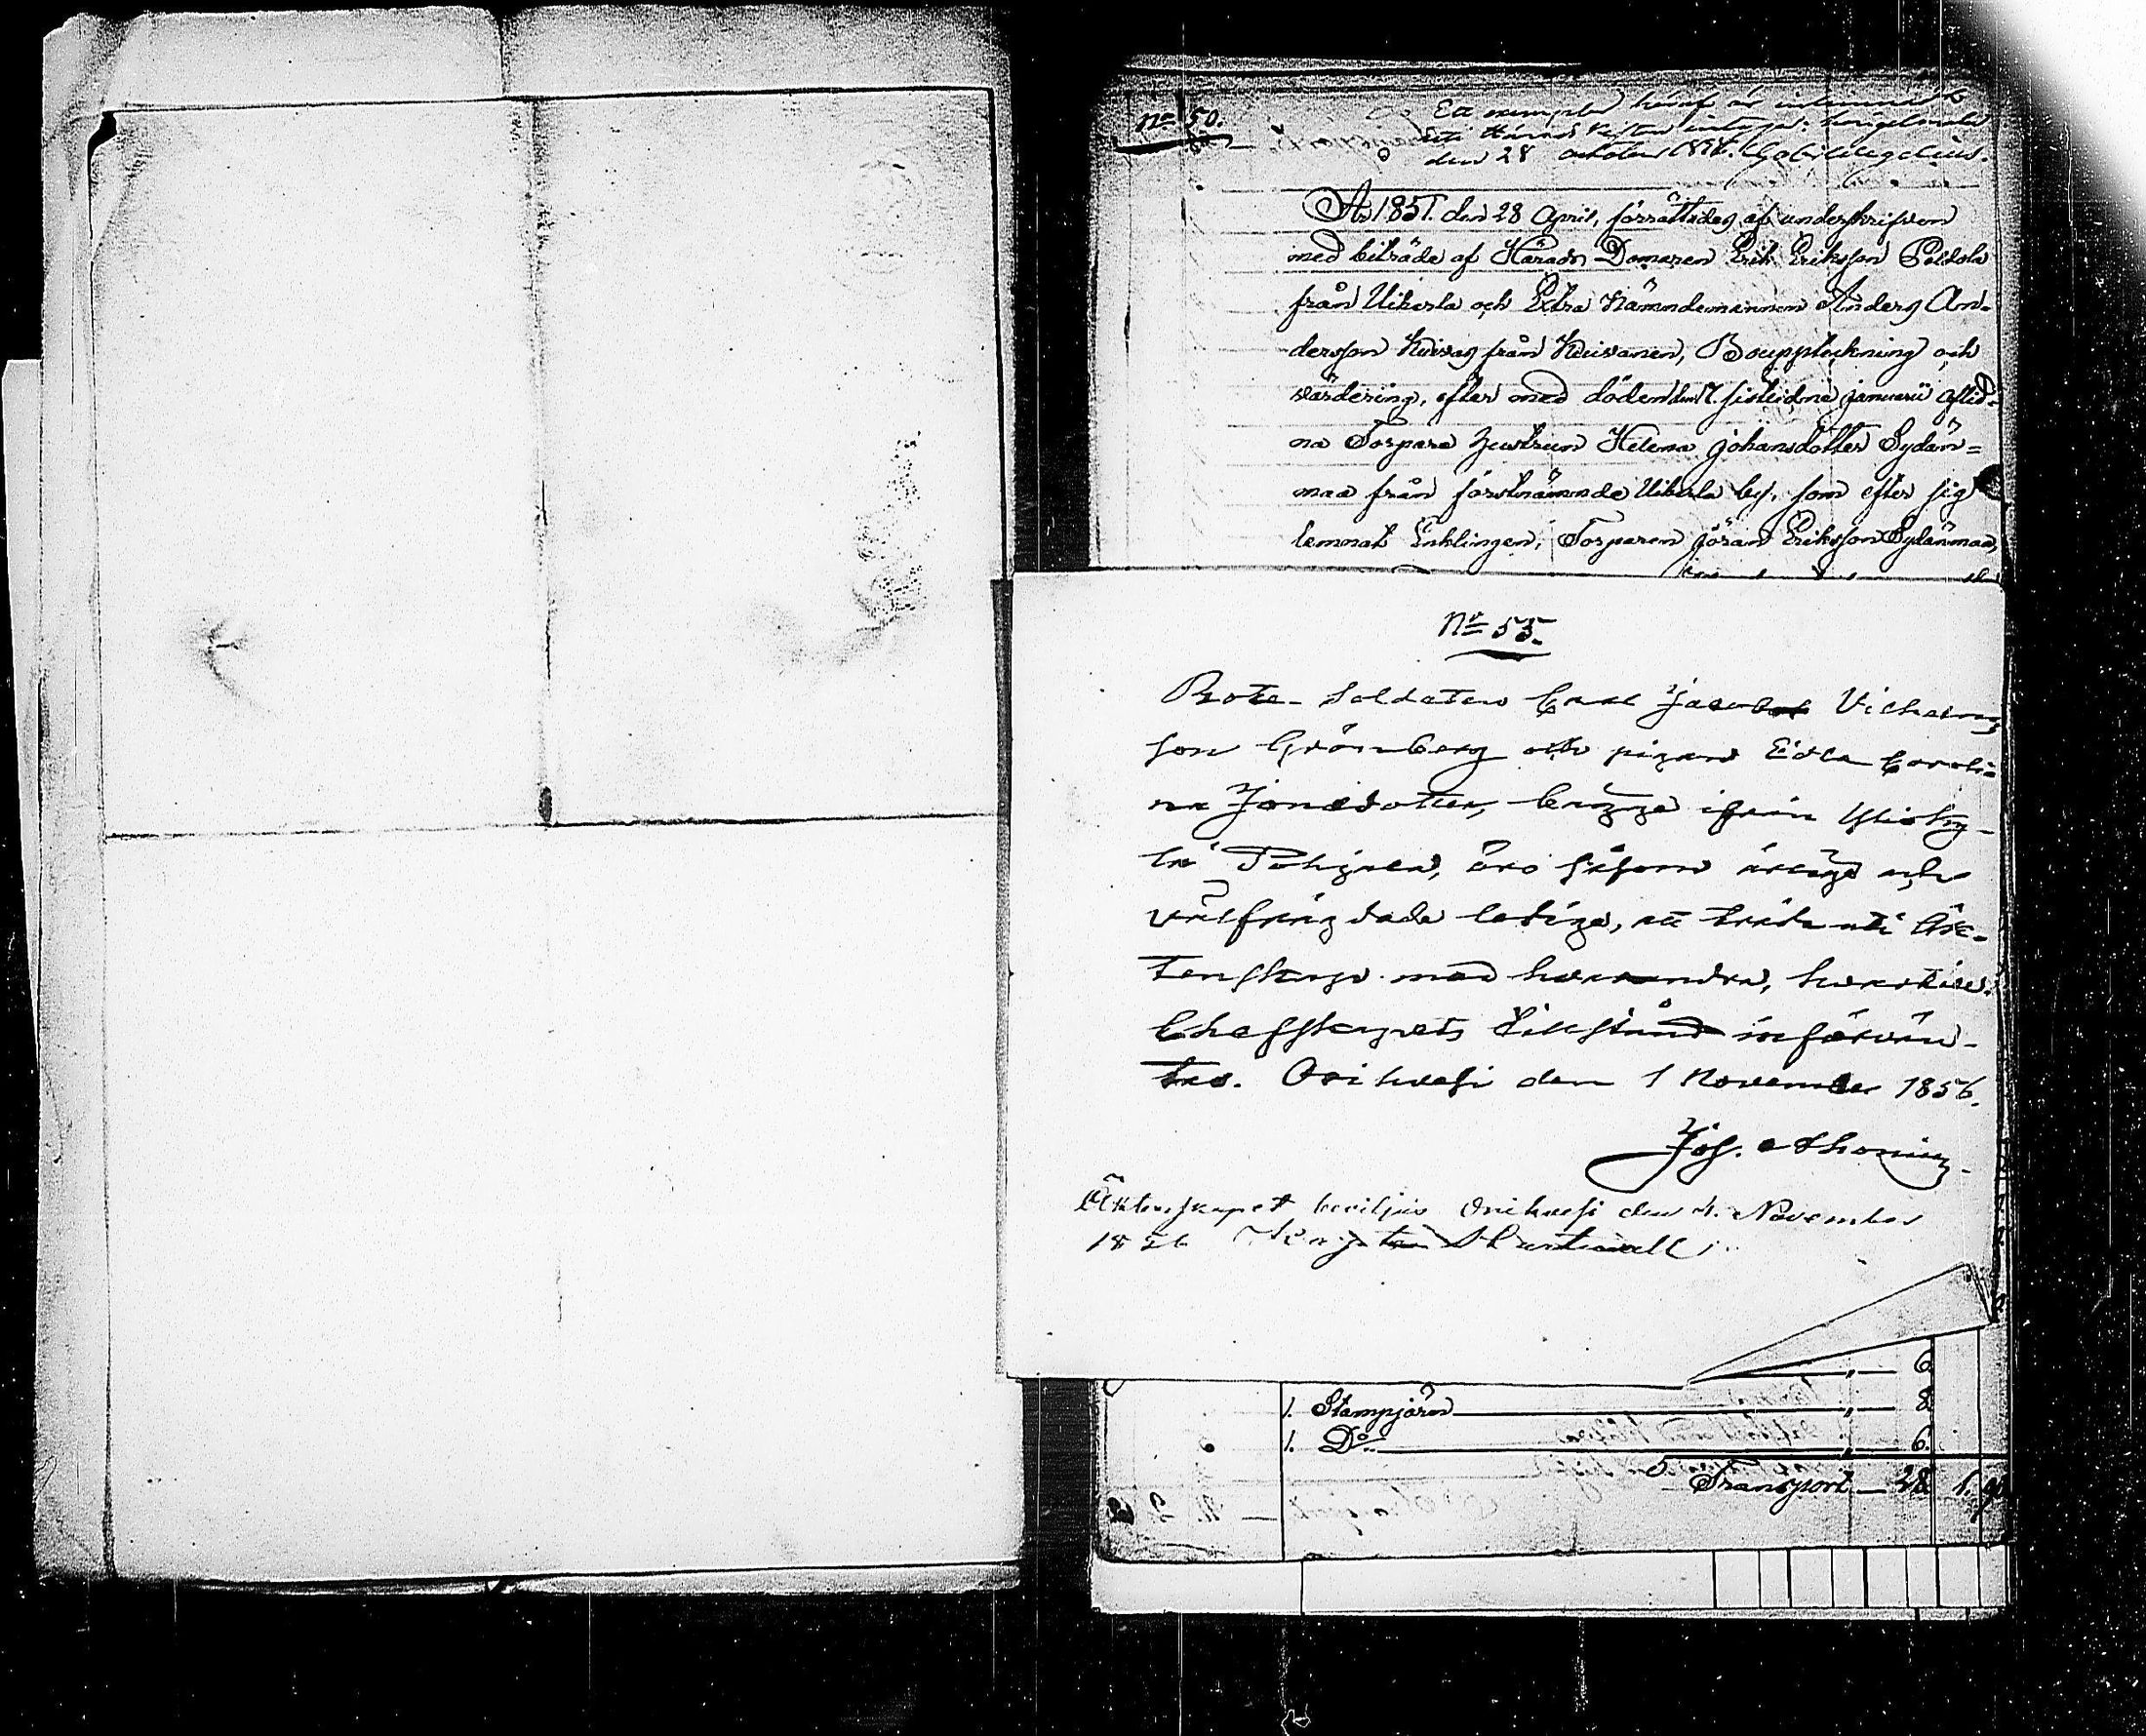 No 50.
Ett exemplar häraf är
den 28 october 1856.
År 1851. den 28 April, förrättades af underskrifven
med biträde af Härads Domaren Erik Eriksson Poldola
från Uiherla och Extra Nämndemannen Anders An-
dersson Kuivas från Kuivanen, Bouppteckning och
värdering, efter med döden den 17. sistlidne januarii aflid-
na Torpare hustrun Helena Johansdotter Sydän=
maa från förstnämnde Uiherla by, som efter sig
lemnat Enklingen, Torparen Jöran Eriksson Sydänmaa,
No 55.
Rote-Soldaten Carl Jacob Vilhelms
son Grönberg och pigan Edla Caroli=
na Jonædotter, begge ifrån Ylisky-
lä Pohjala, äro såsom ärlige och
välfrägdade ledige, att träda uti Äk-
tenskap med hvarandra, hvartill
Chefskapets Tillstånd införvän-
tas. Orihvesi den 1 November 1856.
Jos.
Äktenskapet beviljas Orihvesi den 4. November
1856
6
1. Stampjärn 8
1. Do. 6
Transport 28 1.